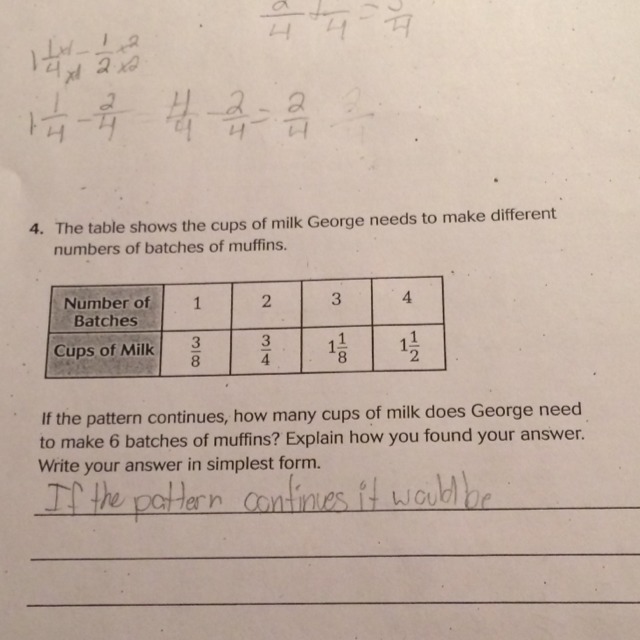 2/4 + 1/4 = 3/4
1 1/4 x1 - 1/2 x2
x1 x2
1 1/4 - 2/4 4/4 - 2/4 = 2/4
4. The table shows the cups of milk George needs to make different
numbers of batches of muffins.
Number of Batches 1 2 3 4
Cups of Milk 3/8 3/4 1 1/8 1 1/2
If the pattern continues, how many cups of milk does George need
to make 6 batches of muffins? Explain how you found your answer.
Write your answer in simplest form.
If the pattern continues it would be